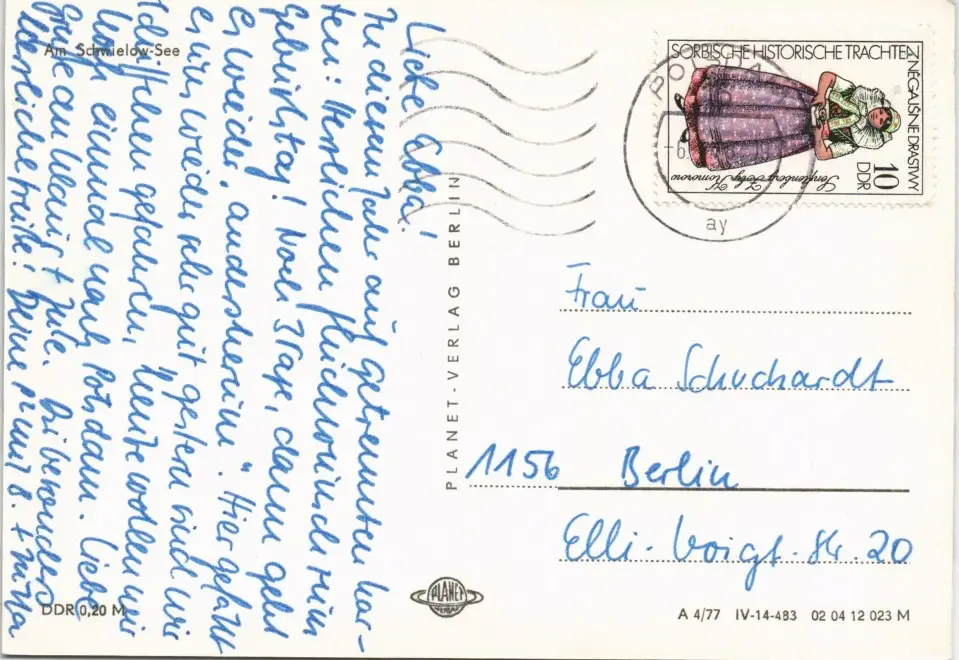 Am Schwielow-See
Liebe Ebba!
In diesem Jahr auf getrennten Kar-
ten: Herzlichen Glückwunsch zum
Geburtstag! Noch 3 Tage, dann geht
es wieder „andersherum". Hier gefällt
es uns wieder sehr gut, gestern sind wir
gefahren, heute wollen wir
noch einmal nach Potsdam. Liebe
Grüße an Klaus + Jule. Dir besonders
herzliche Grüße! Deine
DDR 0,20 M
PLANET-VERLAG BERLIN
PLANET
VERLAG
SORBISCHE HISTORISCHE TRACHTEN
ZNĚGAJŠNE DRASTWY
Senftenberg Zły Komorow
10
DDR
ay
Frau
Ebba Schuchardt
1156 Berlin
Elli-Voigt-Str. 20
A 4/77 IV-14-483 02 04 12 023 M